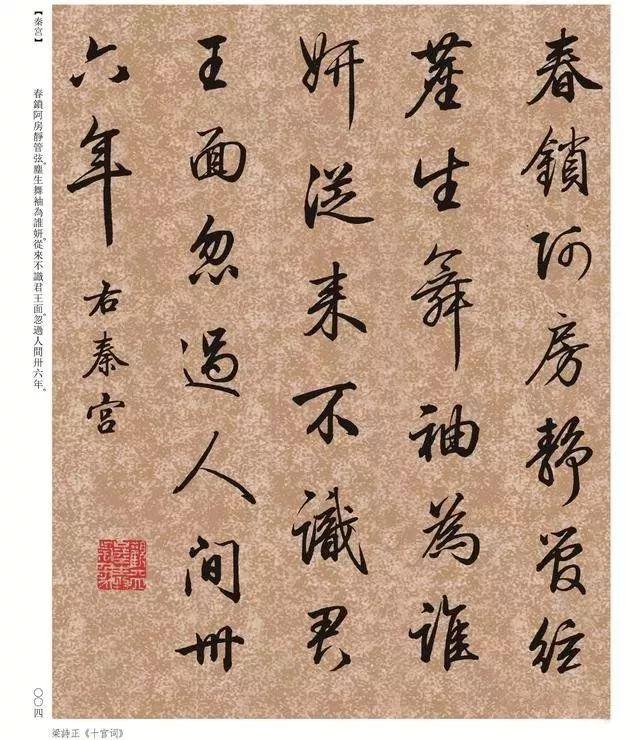 春鎖阿房靜管絃
塵生舞袖為誰
妍從来不識君
王面忽過人间卅
六年
右秦宮
【秦宮】
春鎖阿房靜管弦。塵生舞袖為誰妍。從來不識君王面。忽過人間卅六年。
〇〇四
梁詩正《十宫词》